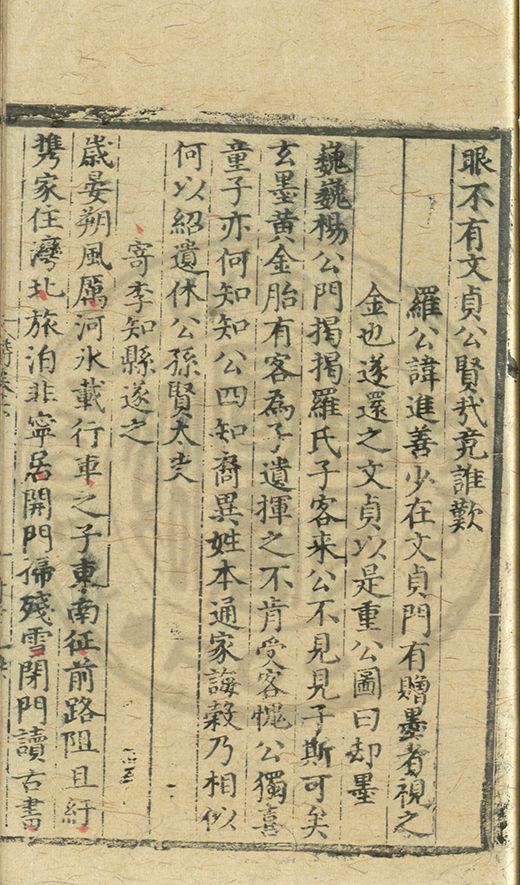 眼不有文貞公賢我竟誰歎
羅公諱進善少在文貞門有贈墨者視之
金也遂還之文貞以是重公圖曰却墨
巍巍楊公門揭揭羅氏子客来公不見見子斯可矣
玄墨黄金胎有客為子遺揮之不肯受客愧公獨喜
童子亦何知知公四知裔異姓本通家誨穀乃相似
何以紹遺休公孫賢大夫
寄李知縣遂之
歲晏朔風厲河氷載行車之子東南征前路阻且紆
携家住灣北旅泊非寧居開門掃殘雪閉門讀古書